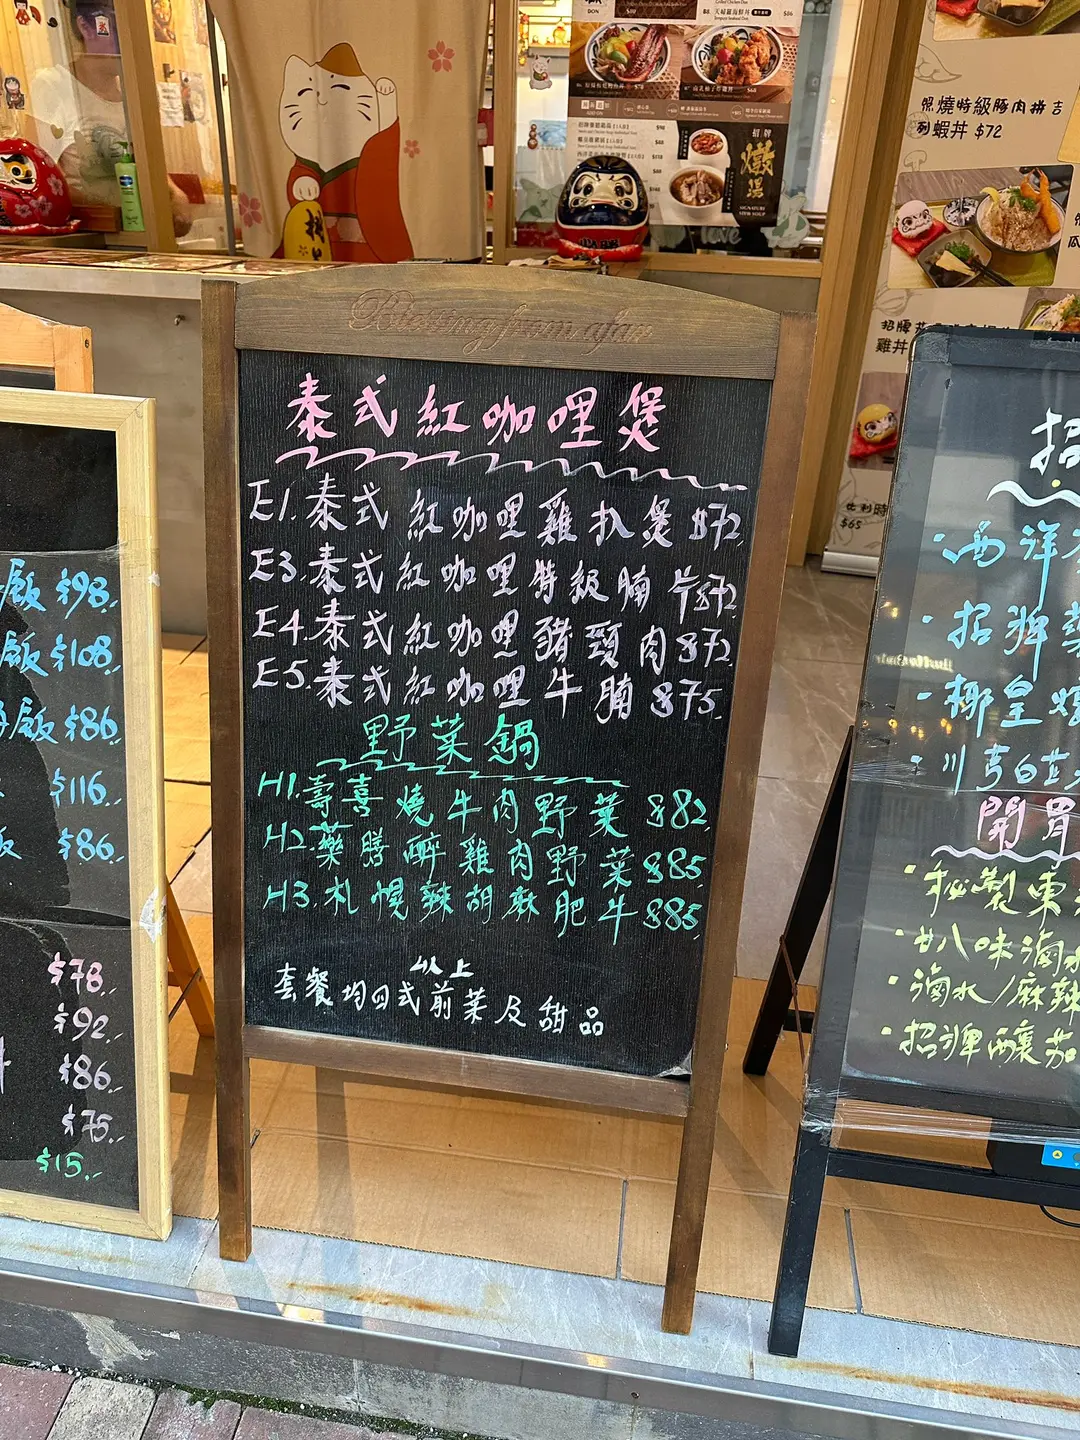 DON
$86
$68
招牌
燉湯
SIGNATURE
STEW SOUP
照燒特級豚肉拼吉
列蝦丼 $72
招牌
雞丼
比利時
$65
Blessing from afar
泰式紅咖哩煲
E1.泰式紅咖哩雞扒煲 $72.
E3.泰式紅咖哩特級腩片$72.
E4.泰式紅咖哩豬頸肉$72.
E5.泰式紅咖哩牛腩 $75.
野菜鍋
H1.壽喜燒牛肉野菜 $82.
H2.藥膳醉雞肉野菜$85.
H3.札幌辣胡麻肥牛$85.
以上
套餐均日式前菜及甜品
飯 $98.
飯 $108.
飯 $86.
$116.
飯 $86.
$78.
$92.
$86.
$75.
$15.
招
·西洋
·招牌
·椰皇燉
·川貝
開胃
·秘製東
味滷水
·滷水/麻辣
·招牌釀茄